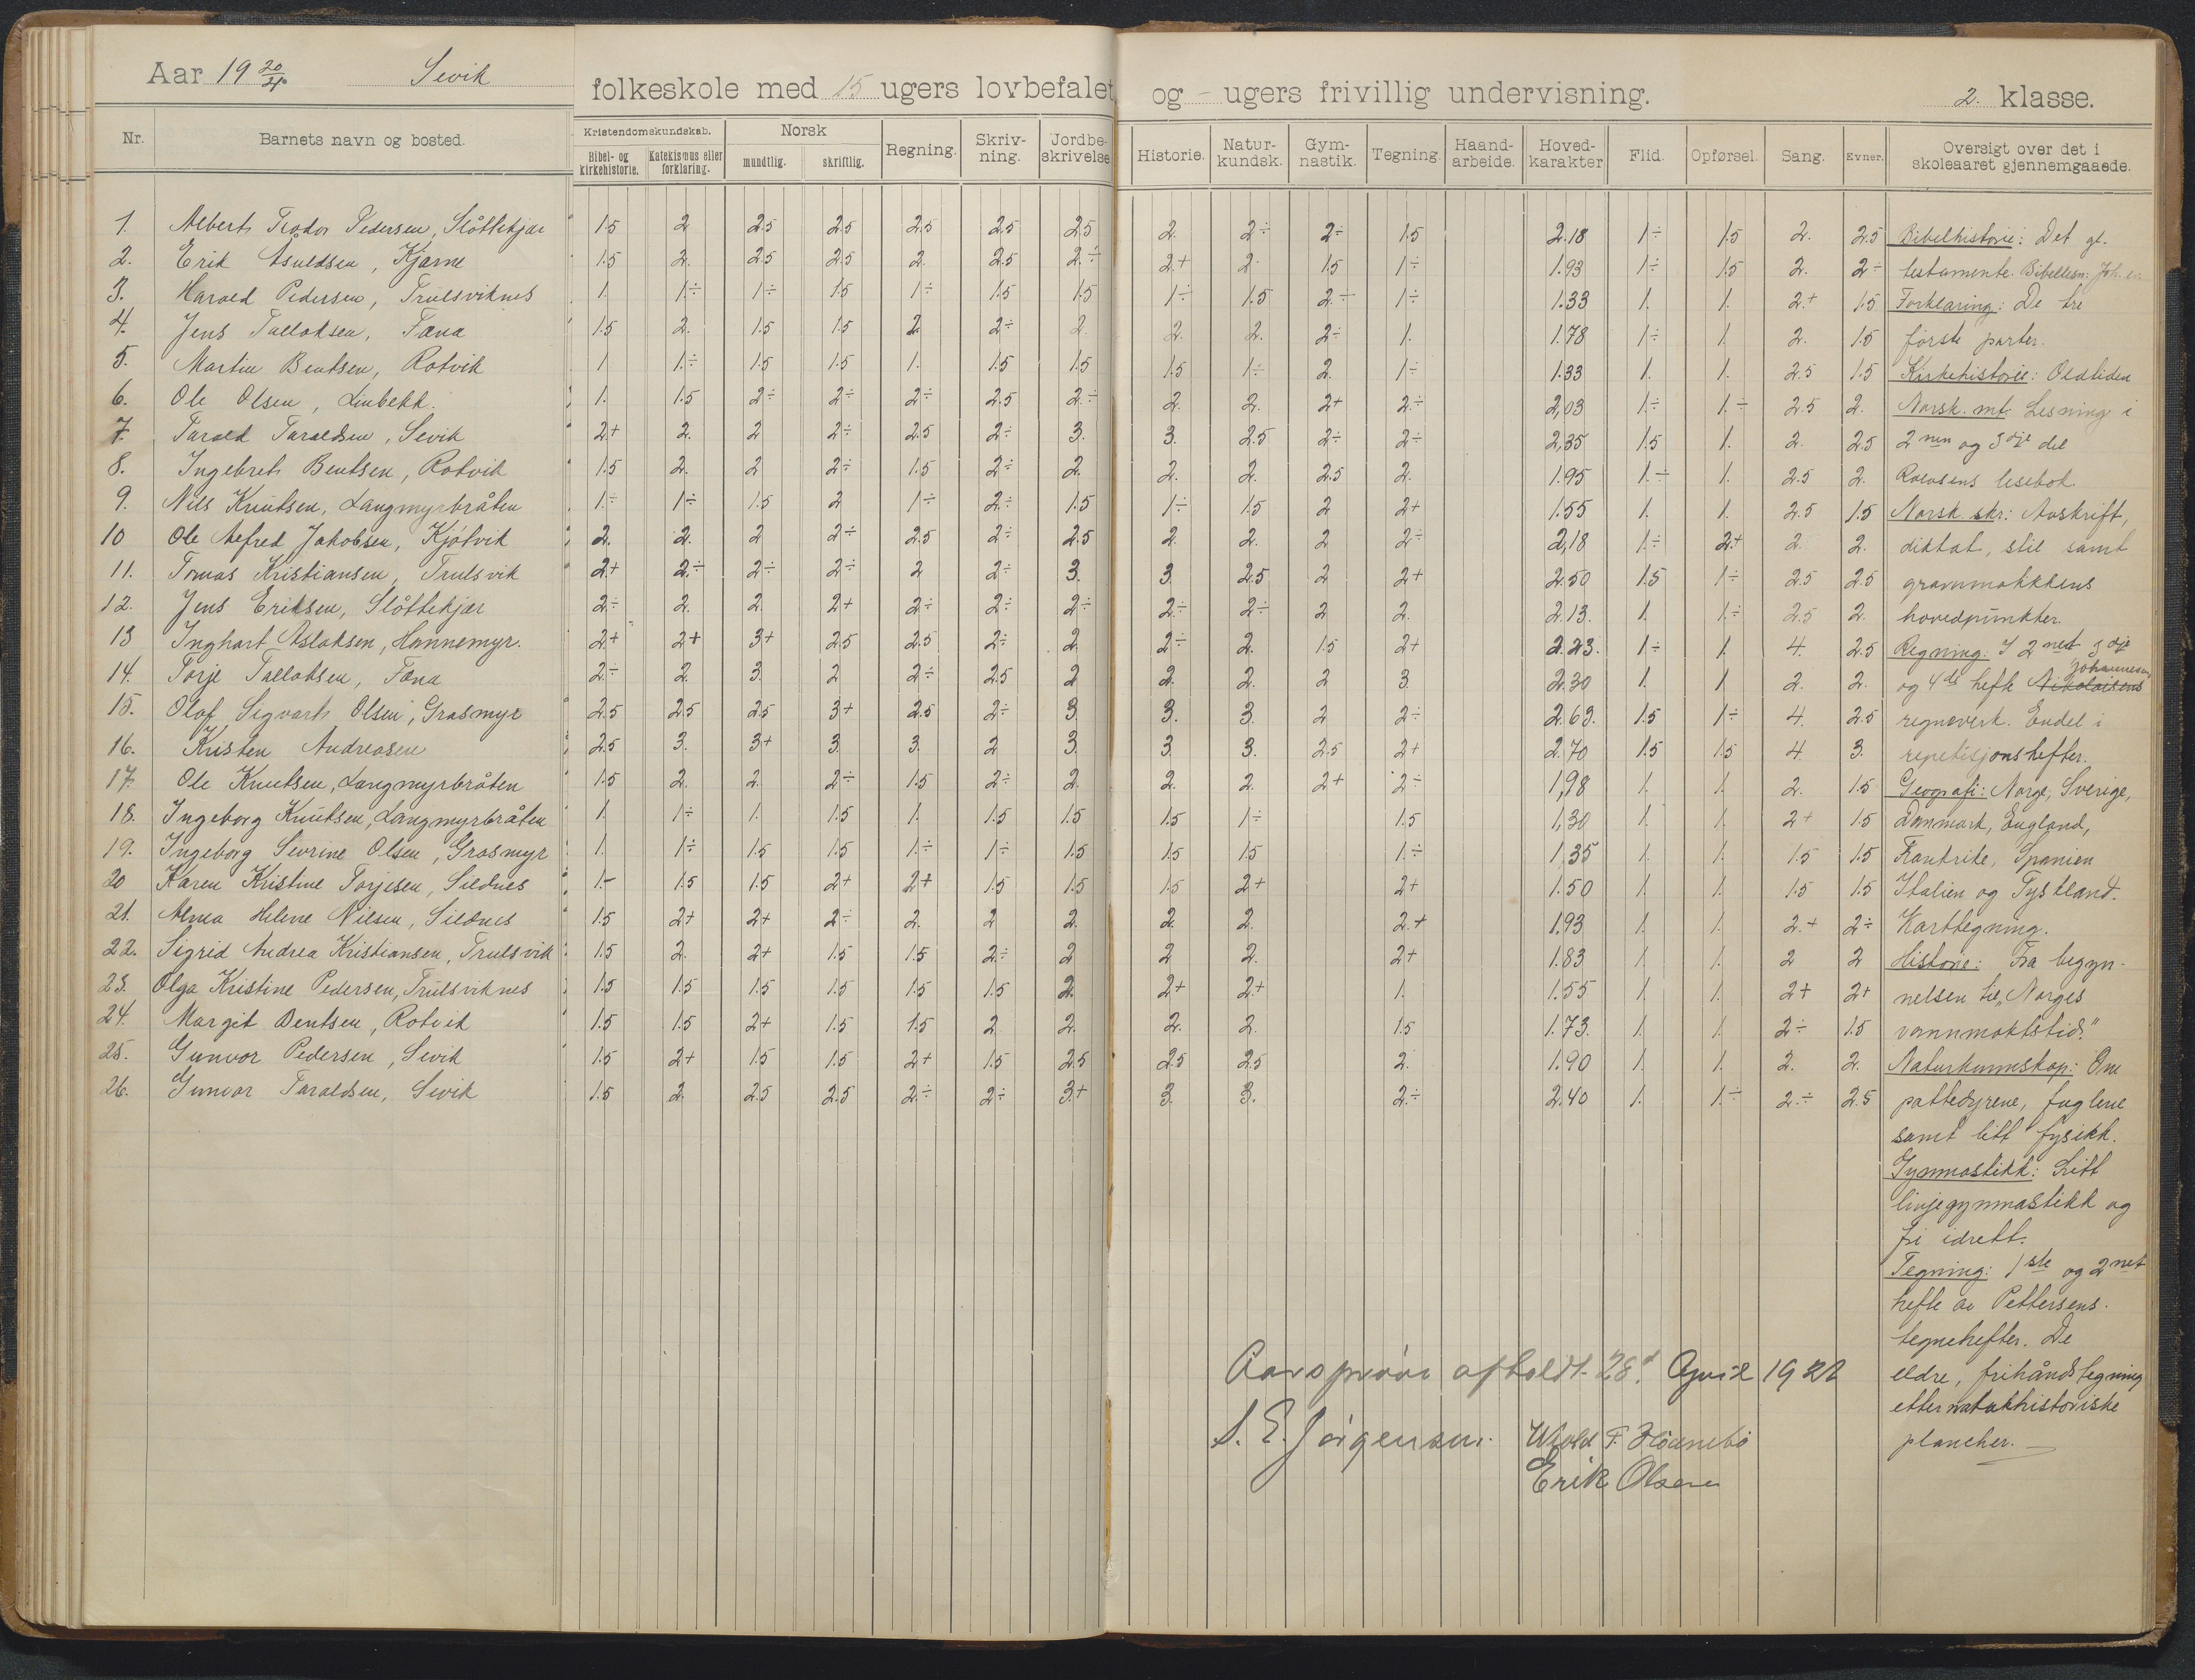 Aar 19 20/21 Sevik folkeskole med 15 ugers lovbefalet og - ugers frivillig undervisning. 2. klasse.
Nr. Barnets navn og bosted. Kristendomskundskab. Bibel- og kirkehistorie. Katekismus eller forklaring. Norsk mundtlig. skriftlig. Regning. Skriv-ning. Jordbe-skrivelse Historie. Natur-kundsk. Gym-nastik. Tegning. Haand-arbeide. Hoved-karakter Flid. Opførsel. Sang. Evner. Oversigt over det i skoleaaret gjennemgaaede.
1. Albert Teodor Pedersen, Slåttekjær 1.5 2 2.5 2.5 2.5 2.5 2.5 2. 2÷ 2÷ 1.5 2.18 1÷ 1.5 2. 2.5 Bibelhistorie: Det gl.
2. Erik Asuldsen, Kjærne 1.5 2. 2.5 2.5 2. 2.5 2.÷ 2.+ 2 1.5 1÷ 1.93 1÷ 1.5 2. 2÷ testamente. Bibellesn: Joh. ev.
3. Harald Pedersen, Trulsviknes 1. 1.÷ 1÷ 1.5 1÷ 1.5 1.5 1÷ 1.5 2.÷ 1÷ 1.33 1. 1. 2.+ 1.5 Forklaring: De tre
4. Jens Tallaksen, Fæna 1.5 2. 1.5 1.5 2. 2÷ 2. 2. 2. 2÷ 1. 1.78 1÷ 1 2. 1.5 første parter.
5. Martin Bentsen, Rotvik 1 1.÷ 1.5 1.5 1. 1.5 1.5 1.5 1÷ 2. 1÷ 1.33 1. 1. 2.5 1.5 Kirkehistorie: Oldtiden
6. Ole Olsen, Linbekk. 1. 1.5 2÷ 2÷ 2÷ 2.5 2.÷ 2. 2. 2+ 2.÷ 2,03 1÷ 1.÷ 2.5 2. Norsk. mt. Lesning i
7. Tarald Taraldsen, Sevik 2+ 2. 2 2÷ 2.5 2÷ 3. 3. 2.5 2÷ 2÷ 2,35 1.5 1. 2. 2.5 2nen og 3dje del
8. Ingebret Bentsen, Rotvik 1.5 2. 2 2÷ 1.5 2÷ 2. 2. 2. 2.5 2. 1.95 1.÷ 1. 2.5 2. Rolvsens lesebok
9. Nils Knutsen, Langmyrbråten 1.÷ 1÷ 1.5 2 1÷ 2÷ 1.5 1÷ 1.5 2 2+ 1.55 1. 1. 2.5 1.5 Norsk skr: Avskrift,
10 Ole Alfred Jakobsen, Kjøtvik 2. 2. 2 2÷ 2.5 2÷ 2.5 2. 2. 2 2÷ 2,18 1÷ 2+ 2. 2. diktat, stil samt
11. Tomas Kristiansen, Trulsvik 2+ 2.÷ 2÷ 2÷ 2 2÷ 3. 3. 2.5 2 2+ 2.50 1.5 1÷ 2.5 2.5 grammatikkens
12. Jens Eriksen, Slåttekjær 2÷ 2. 2. 2+ 2÷ 2÷ 2÷ 2.÷ 2÷ 2 2. 2.13. 1. 1.÷ 2.5 2. hovedpunkter.
13 Inghart Aslaksen, Hannemyr. 2+ 2+ 3+ 2.5 2.5 2÷ 2. 2÷ 2. 1.5 2+ 2.23. 1÷ 1. 4. 2.5 Regning: I 2net 3dje
14. Torje Tallaksen, Fæna 2÷ 2. 3. 2 2÷ 2.5 2 2. 2. 2 3. 2.30 1. 1 2. 2. og 4de hefte Nikolaisens Johannesens
15. Olaf Sigvart Olsen, Grasmyr 2.5 2.5 2.5 3+ 2.5 2÷ 3. 3. 3. 2 2÷ 2.63. 1.5 1÷ 4. 2.5 regneverk. Endel i
16. Kristen Andreasen 2.5 3. 3+ 3. 3. 2 3. 3. 3. 2.5 2+ 2.70 1.5 1.5 4 3. repetisjonshefter.
17. Ole Knutsen, Langmyrbråten 1.5 2. 2. 2÷ 1.5 2÷ 2. 2. 2. 2+ 2÷ 1,98 1. 1. 2. 1.5 Geografi: Norge, Sverige,
18. Ingeborg Knutsen, Langmyrbråten 1. 1÷ 1. 1.5 1. 1.5 1.5 1.5 1÷ 1.5 1,30 1. 1. 2+ 1.5 Danmark, England,
19. Ingeborg Sevrine Olsen, Grasmyr 1. 1÷ 1.5 1.5 1.÷ 1÷ 1.5 1.5 1.5 1.÷ 1,35 1. 1. 1.5 1.5 Frankrike, Spanien
20 Karen Kristine Torjesen, Sildnes 1.- 1.5 1.5 2+ 2+ 1.5 1.5 1.5 2+ 2+ 1.50 1. 1. 1.5 1.5 Italien og Tyskland.
21. Alma Helene Nilsen, Sildnes 1.5 2+ 2+ 2÷ 2. 2 2. 2. 2. 2.+ 1.93 1. 1. 2.+ 2÷ Karttegning.
22. Sigrid Andrea Kristiansen, Trulsvik 1.5 2. 2+ 1.5 1.5 2÷ 2 2 2. 2+ 1.83 1. 1. 2 2 Historie: Fra begyn-
23. Olga Kristine Pedersen, Trulsviknes 1.5 1.5 1.5 1.5 1.5 1.5 2. 2+ 2+ 1. 1.55 1. 1. 2+ 2+ nelsen til "Norges
24. Margit Bentsen, Rotvik 1.5 1.5 2+ 1.5 1.5 2 2. 2. 2. 1.5 1.73. 1. 1. 2÷ 1.5 vannmaktstid."
25. Gunvor Pedersen, Sevik 1.5 2+ 1.5 1.5 2+ 1.5 2.5 2.5 2.5 2. 1.90 1. 1. 2. 2. Naturkunnskap: Om
26. Gunvor Taraldsen, Sevik 1.5 2. 2.5 2.5 2.÷ 2÷ 3+ 3. 3. 2.÷ 2.40 1. 1.÷ 2.÷ 2.5 pattedyrene, fuglene
samt litt fysikk.
Gymnastikk: Litt
linjegymnastikk og
fri idrett.
Tegning: 1ste og 2net
hefte av Pettersens
tegnehefter. De
eldre, frihåndstegning
etter naturhistoriske
plancher.
Aarsprøve afholdt 28d April 1921
S. E. Jørgensen.
Erik Olsen